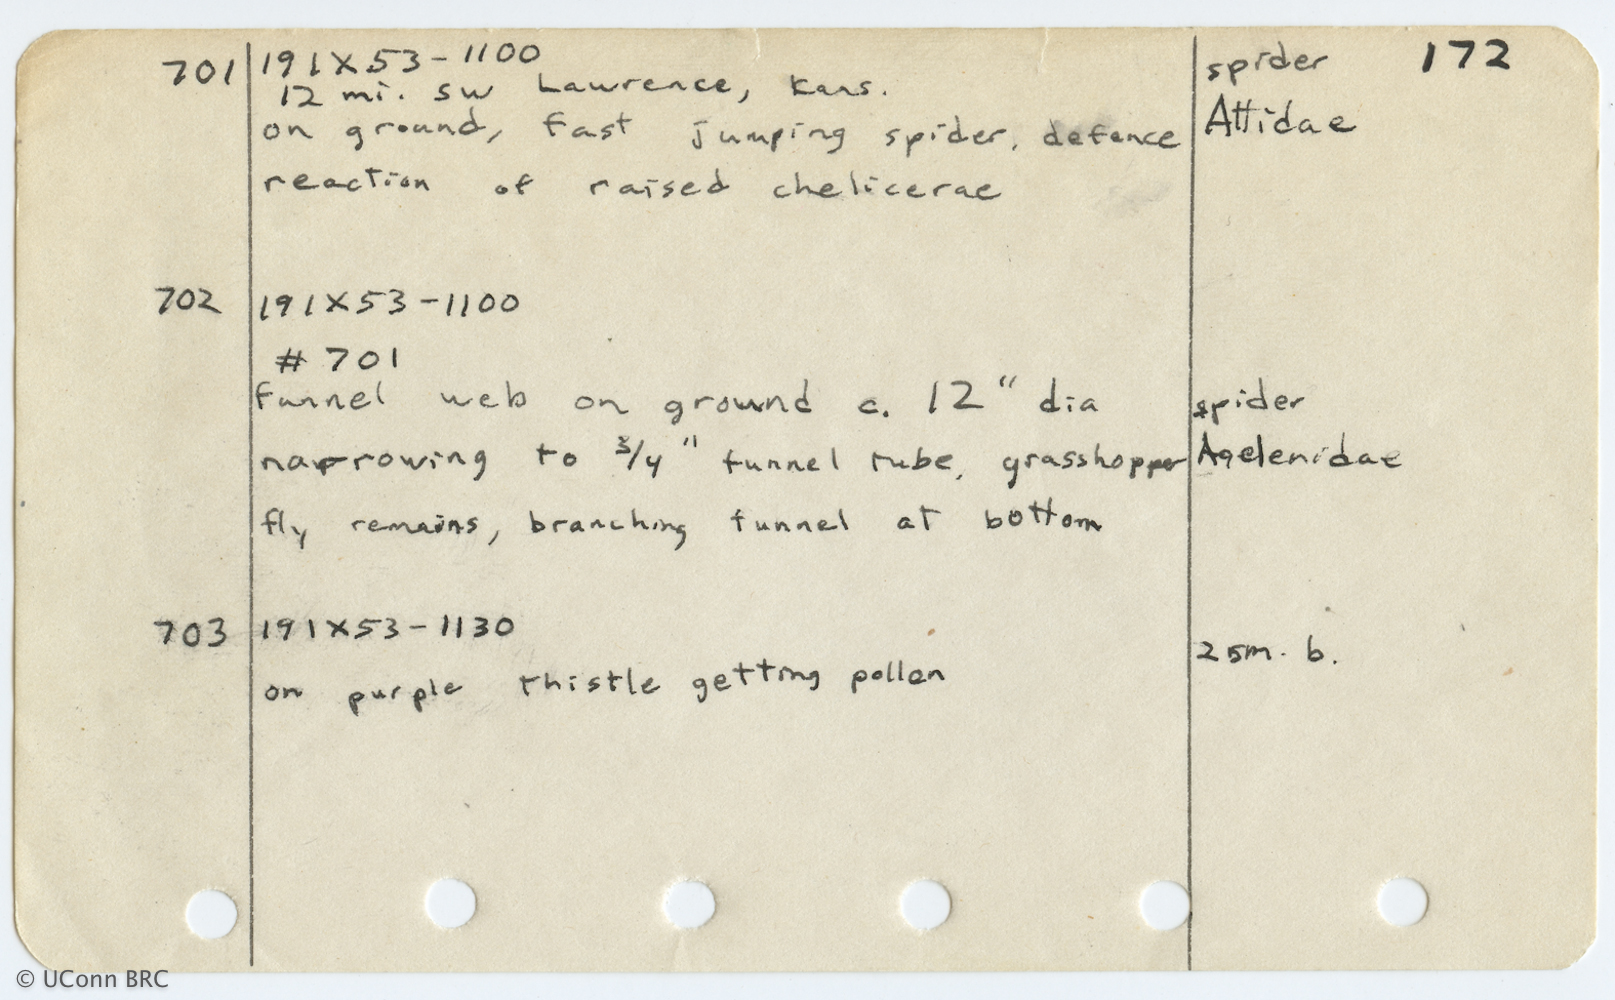 172
701 191X53-1100 spider
12 mi. SW Lawrence, Kans.
on ground, fast jumping spider, defence Attidae
reaction of raised chelicerae
702 191X53-1100
# 701
funnel web on ground c. 12" dia spider
narrowing to 3/4" funnel tube, grasshopper Agelenidae
fly remains, branching tunnel at bottom
703 191X53-1130
25m. b.
on purple thistle getting pollen
© UConn BRC